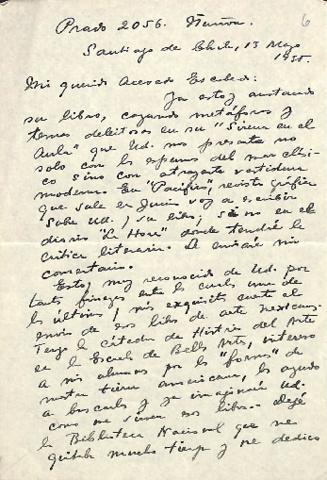 6
Prado 2056. Ñuñoa.
Santiago de Chile, 13 Mayo
1955.
Mi querido Acevedo Escobedo:
Ya estoy anotando
su libro, cazando metáforos y
temas deleitosos en su "Sirena en el
Aula" que Ud. nos presenta no
solo con las espumas del mar clási-
co sino con atrayente vestidura
moderna. En "Pacífico", revista gráfica
que sale en Junio voy a escribir
sobre Ud. y su libro; si no en el
diario "La Hora" donde tendré la
crítica literaria. Le enviaré mi
comentario.
Estoy muy reconocido de Ud. por
tantas finezas entre las cuales una de
las últimas, y más exquisita
envío de sos libros de arte mexicano.
Tengo la cátedra de Historia del Arte
en la Escuela de Bellas Artes, intereso
a mis alumnos por las "formas" de
nuestra tierra americana, les ayudo
a buscarlas y ya imaginará Ud.
como me sirven sos libros. Dejé
la Biblioteca Nacional que me
quitaba mucho tiempo y me dedico